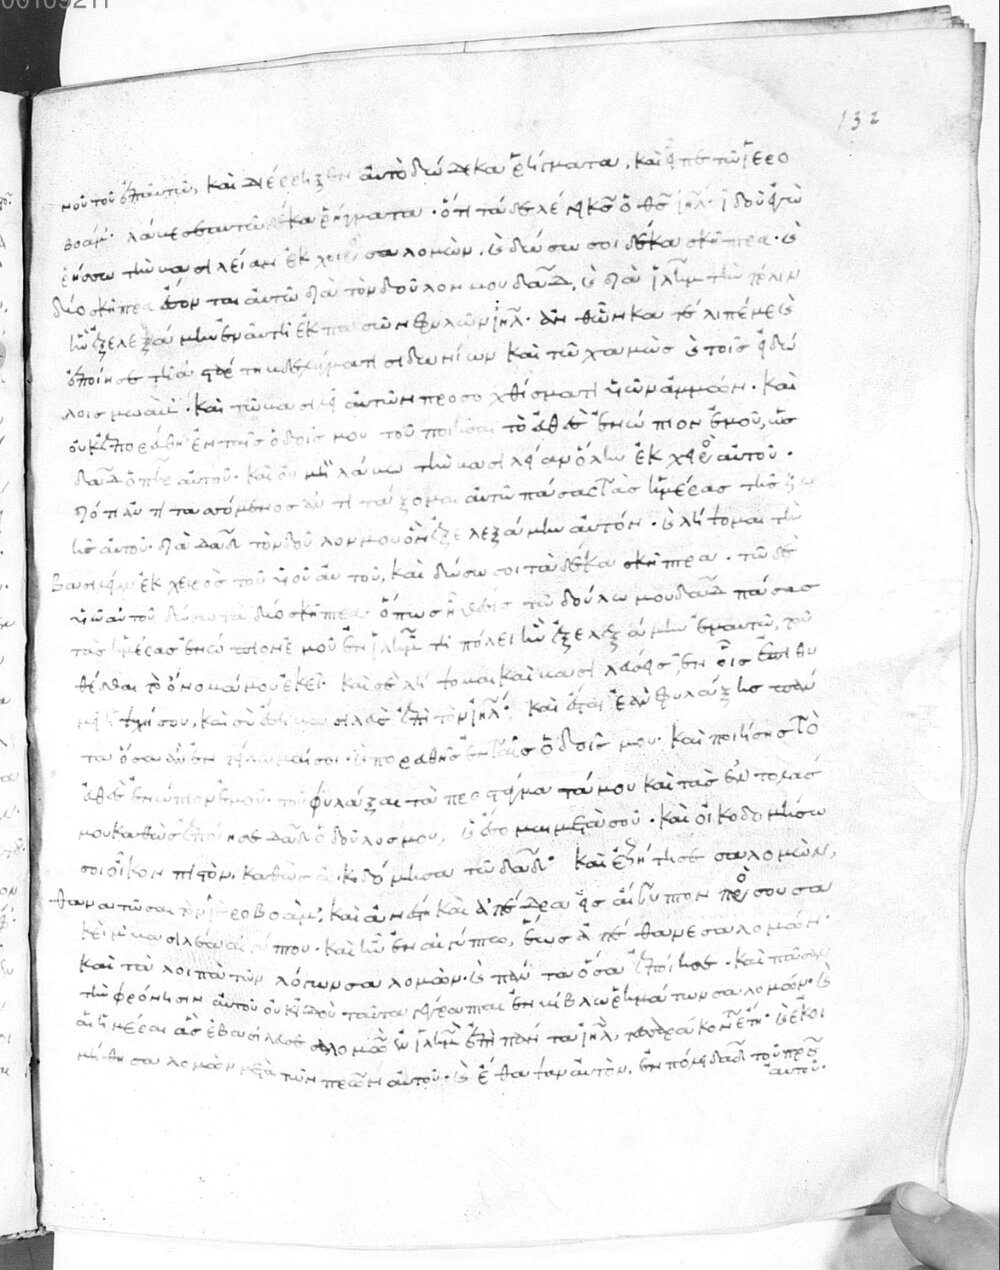 132
νοῦ τοῦ ἐπ' αὐτῶ, καὶ διέρρηξεν αὐτὸ δώδεκα ῥήγματα, καὶ εἶπε τῶ ἱερο
βοάμ· λάβε σεαυτῶ δέκα ῥήγματα· ὅτι τάδε λέγει κς ὁ θς ιηλ· ἰδοὺ ἐγὼ
ῥήσσω τὴν βασιλείαν ἐκ χειρὸς σαλομὼν, καὶ δώσω σοι δέκα σκῆπτρα· καὶ
δύο σκῆπτρα ἔσονται αὐτῶ διὰ τὸν δοῦλόν μου δαδ, καὶ διὰ ιλημ τὴν πόλιν
ἣν ἐξελεξάμην ἐν αὐτῆ ἐκ πασῶν φυλῶν ιηλ· ἀνθ' ὧν κατέλιπέ με καὶ
ἐποίησε τῆ ἀστάρτη βδελύγματι σιδωνίων καὶ τῶ χαμὼς καὶ τοῖς εἰδώ
λοις μωὰβ· καὶ τῶ βασιλεῖ αὐτῶν προσοχθίσματι υἱῶν ἀμμών· καὶ
οὐκ ἐπορεύθη ἐν ταῖς ὁδοῖς μου τοῦ ποιῆσαι τὸ εὐθὲς ἐνώπιον ἐμοῦ, ὡς
δαδ ὁ πηρ αὐτοῦ· καὶ οὐ μὴ λάβω τὴν βασιλείαν ὅλην ἐκ χειρὸς αὐτοῦ·
διότι ἀντιτασσόμενος ἀντιτάξομαι αὐτῶ πάσας τὰς ἡμέρας τῆς ζω
ῆς αὐτοῦ· διὰ δαδ τὸν δοῦλόν μου ὃν ἐξελεξάμην αὐτόν· καὶ λήψομαι τὴν
βασιλείαν ἐκ χειρὸς τοῦ υἱοῦ αὐτοῦ, καὶ δώσω σοι τὰ δέκα σκῆπτρα· τῶ δὲ
υἱῶ αὐτοῦ δώσω τὰ δύο σκῆπτρα· ὅπως ἦ θέσις τῶ δούλω μου δαδ πάσας
τὰς ἡμέρας ἐνώπιον ἐμοῦ ἐν ιλημ τῆ πόλει ἣν ἐξελεξάμην ἐμαυτῶ, τοῦ
θέσθαι τὸ ὄνομά μου ἐκεῖ· καὶ σὲ λήψομαι καὶ βασιλεύσεις ἐν οἷς ἐπιθυ
μεῖ ἡ ψυχή σου, καὶ σὺ ἔση βασιλεὺς ἐπὶ τὸν ιηλ· καὶ ἔσται ἐὰν φυλάξης πάν
τα ὅσα ἂν ἐντείλωμαί σοι· καὶ πορευθῆς ἐν ταῖς ὁδοῖς μου· καὶ ποιήσης τὸ
εὐθὲς ἐνώπιον ἐμοῦ· τοῦ φυλάξαι τὰ προστάγματά μου καὶ τὰς ἐντολάς
μου καθὼς ἐποίησε δαδ ὁ δοῦλός μου, καὶ ἔσομαι μετὰ σοῦ· καὶ οἰκοδομήσω
σοι οἶκον πιστὸν, καθὼς ὠκοδόμησα τῶ δαδ· καὶ ἐζήτησε σαλομὼν,
θανατῶσαι τὸν ἱεροβοὰμ· καὶ ἀνέστη καὶ ἀπέδρα εἰς αἴγυπτον πρὸς σουσα
κεὶμ βασιλέα αἰγύπτου· καὶ ἦν ἐν αἰγύπτω, ἕως ἀπέθανε σαλομών·
καὶ τὰ λοιπὰ τῶν λόγων σαλομὼν· καὶ πάντα ὅσα ἐποίησε· καὶ πᾶσαν
τὴν φρόνησιν αὐτοῦ οὐκ ἰδοὺ ταῦτα γέγραπται ἐν βιβλίω ῥημάτων σαλομὼν· καὶ
αἱ ἡμέραι ἃς ἐβασίλευσε σαλομὼν ἐν ιλημ ἐπὶ πάντα ιηλ, τεσσράκοντα ἔτη· καὶ ἐκοι
μήθη σαλομὼν μετὰ τῶν πρων αὐτοῦ· καὶ ἔθαψαν αὐτὸν, ἐν πόλει δαδ τοῦ πρς
αὐτοῦ·